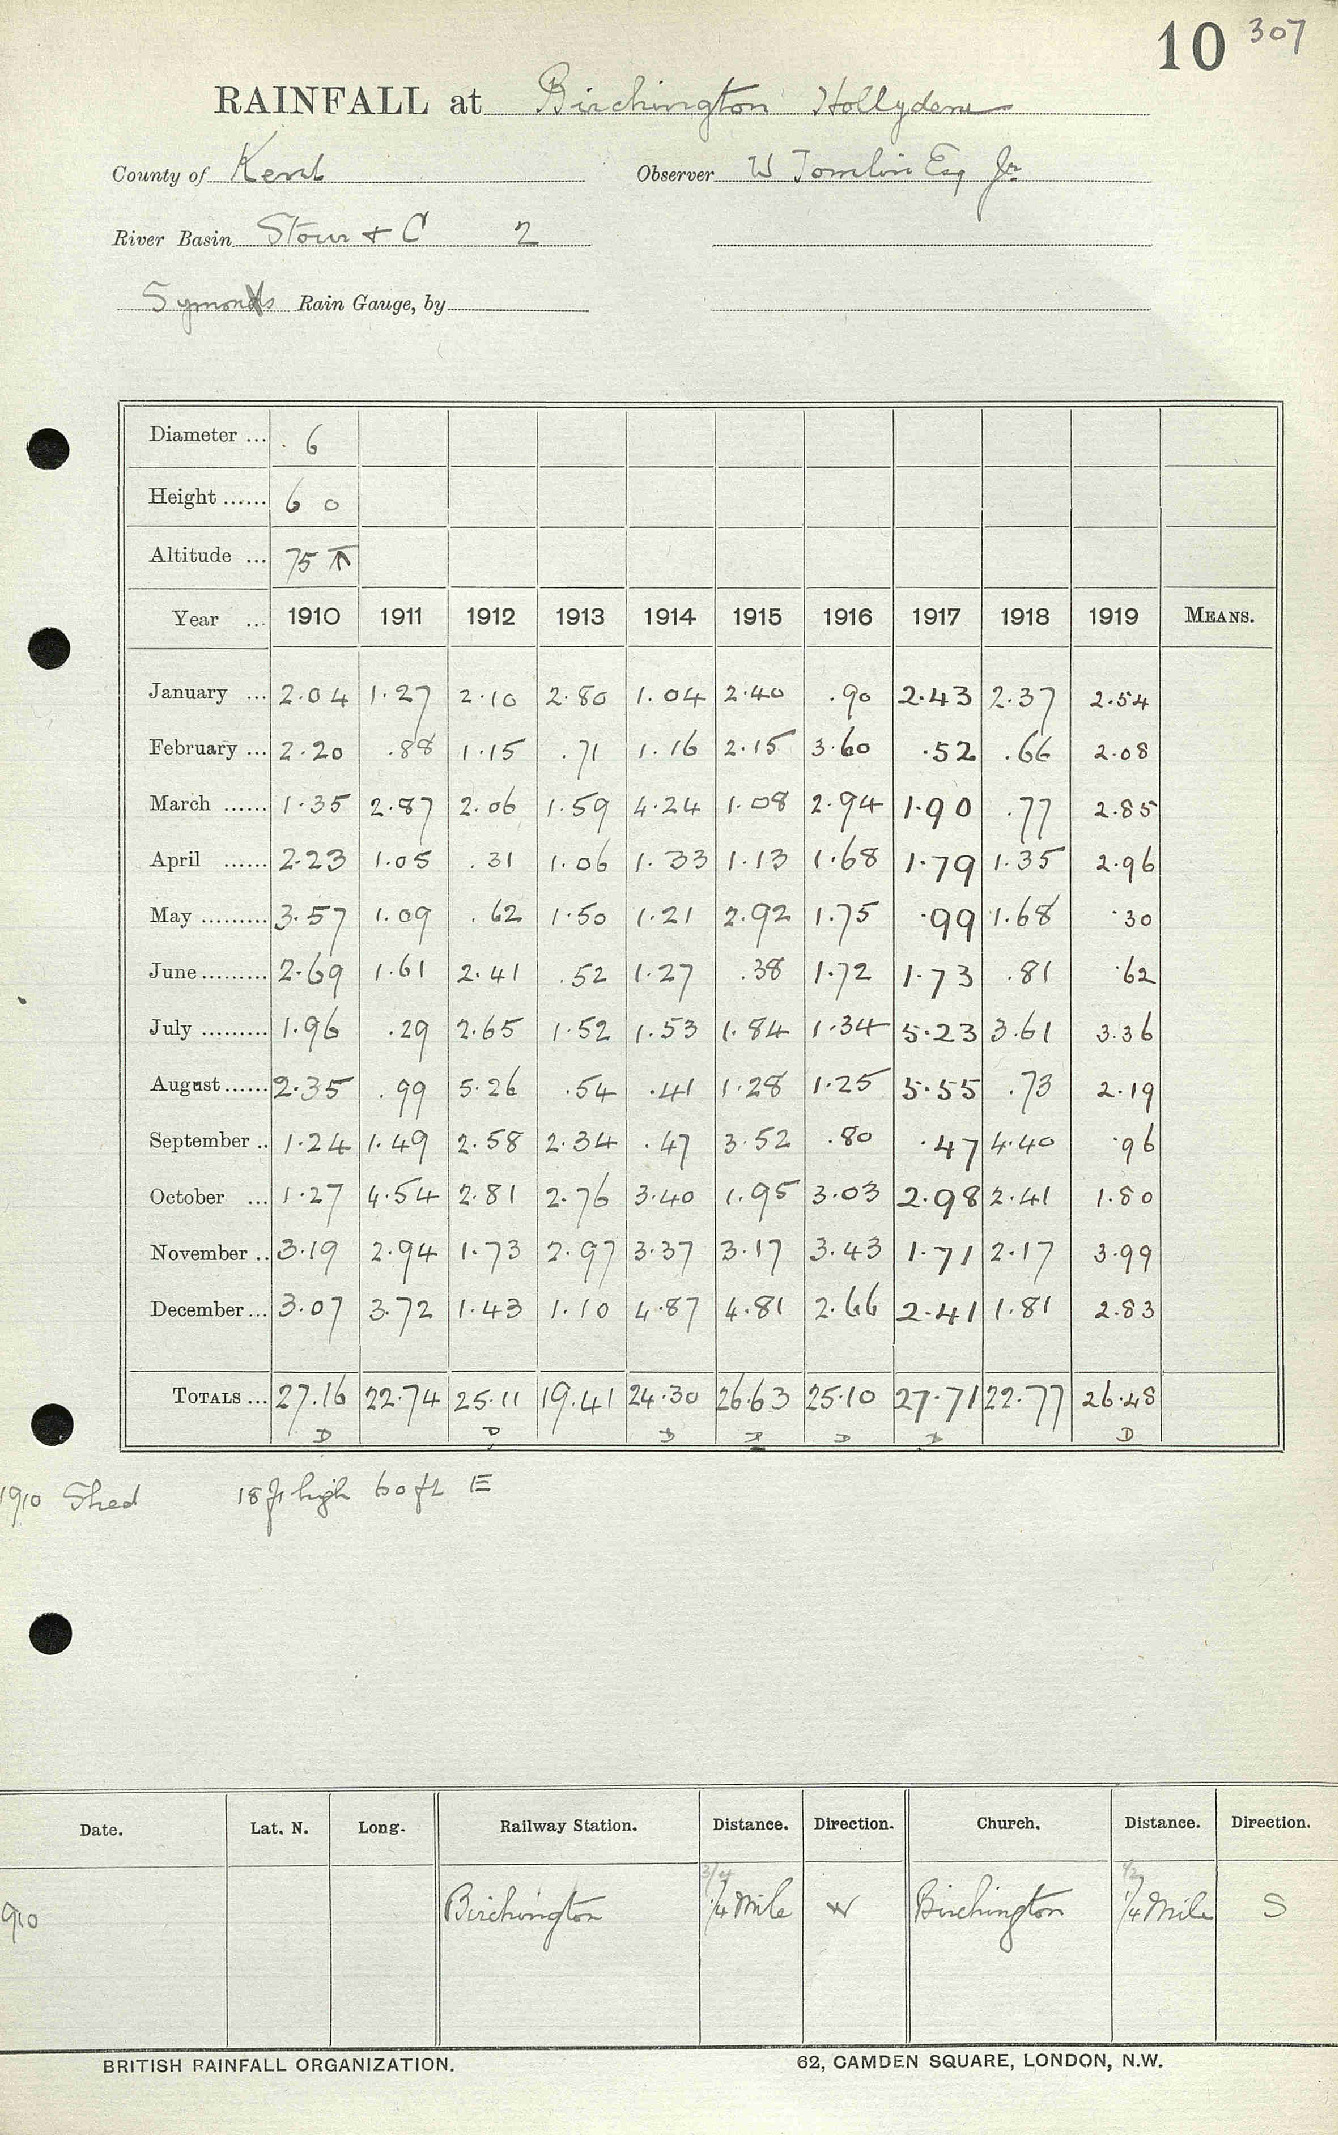 10 307
RAINFALL at Birchington Hollydene
County of Kent Observer W Tomlin Esq Jr
River Basin Stour & C 2
Symonds Rain Gauge, by
Diameter ... 6
Height ...... 6 0
Altitude ... 75
Year ... 1910 1911 1912 1913 1914 1915 1916 1917 1918 1919 MEANS.
January ... 2.04 1.27 2.10 2.80 1.04 2.40 .90 2.43 2.37 2.54
February ... 2.20 .88 1.15 .71 1.16 2.15 3.60 .52 .66 2.08
March ...... 1.35 2.87 2.06 1.59 4.24 1.08 2.94 1.90 .77 2.85
April ...... 2.23 1.05 .31 1.06 1.33 1.13 1.68 1.79 1.35 2.96
May ......... 3.57 1.09 .62 1.50 1.21 2.92 1.75 .99 1.68 .30
June ......... 2.69 1.61 2.41 .52 1.27 .38 1.72 1.73 .81 .62
July ......... 1.96 .29 2.65 1.52 1.53 1.84 1.34 5.23 3.61 3.36
August ...... 2.35 .99 5.26 .54 .41 1.28 1.25 5.55 .73 2.19
September .. 1.24 1.49 2.58 2.34 .47 3.52 .80 .47 4.40 .96
October ... 1.27 4.54 2.81 2.76 3.40 1.95 3.03 2.98 2.41 1.80
November .. 3.19 2.94 1.73 2.97 3.37 3.17 3.43 1.71 2.17 3.99
December ... 3.07 3.72 1.43 1.10 4.87 4.81 2.66 2.41 1.81 2.83
TOTALS ... 27.16 22.74 25.11 19.41 24.30 26.63 25.10 27.71 22.77 26.48
D D D D D D D
1910 Shed 18ft high 60 ft E
Date. Lat. N. Long. Railway Station. Distance. Direction. Church. Distance. Direction.
3/4 1/2
910 Birchington 1/4 Mile W Birchington 1/4 Mile S
BRITISH RAINFALL ORGANIZATION. 62, CAMDEN SQUARE, LONDON, N.W.